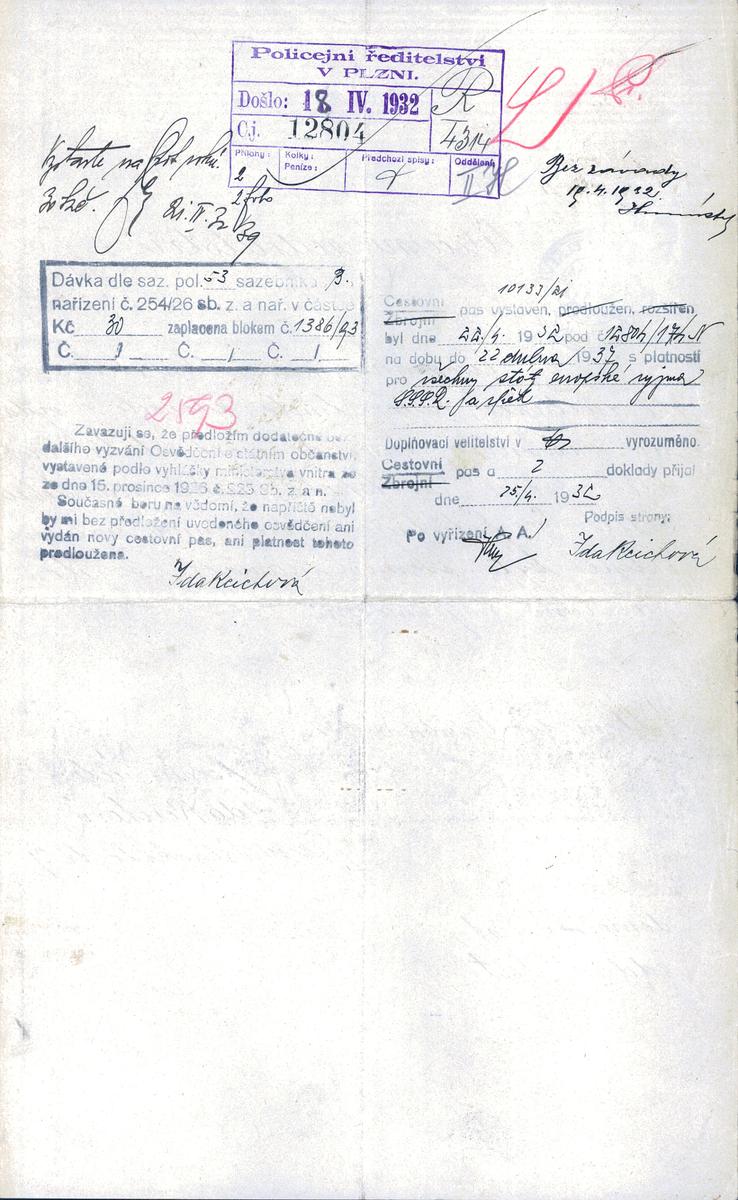 Policejní ředitelství
V PLZNI.
Došlo: 18 IV. 1932
R
Čj. 12804
I 4314
Přílohy: 2
Kolky:
Peníze:
Předchozí spisy:
Oddělení:
II
2 foto
na
roků.
30 Kč.
21. IV. 32
Bez závady
19. 4. 1932.
Dávka dle saz. pol. 53 sazebníku B.
nařízení č. 254/26 sb. z. a nař. v částce
Kč 30 zaplacena blokem č. 1386/93
Č. Č. Č.
2593
Zavazuji se, že předložím dodatečně bez
dalšího vyzvání Osvědčení o státním občanství,
vystavené podle vyhlášky ministerstva vnitra ze
ze dne 15. prosince 1926 č. 225 Sb. z. a n.
Současně beru na vědomí, že napříště nebyl
by mi bez předložení uvedeného osvědčení ani
vydán nový cestovní pas, ani platnost tohoto
prodloužena.
Ida Reichová
10133/21
Cestovní
Zbrojní pas vystaven, prodloužen, rozšířen,
byl dne 22/4. 1932 pod č. 12804/1932
na dobu do 22 dubna 1937 s platností
pro všechny státy evropské vyjma
S.S.S.R. a zpět
Doplňovací velitelství v vyrozuměno.
Cestovní
Zbrojní pas a 2 doklady přijal
dne 25/4. 1932
Podpis strany:
Po vyřízení A. A.
Ida Reichová